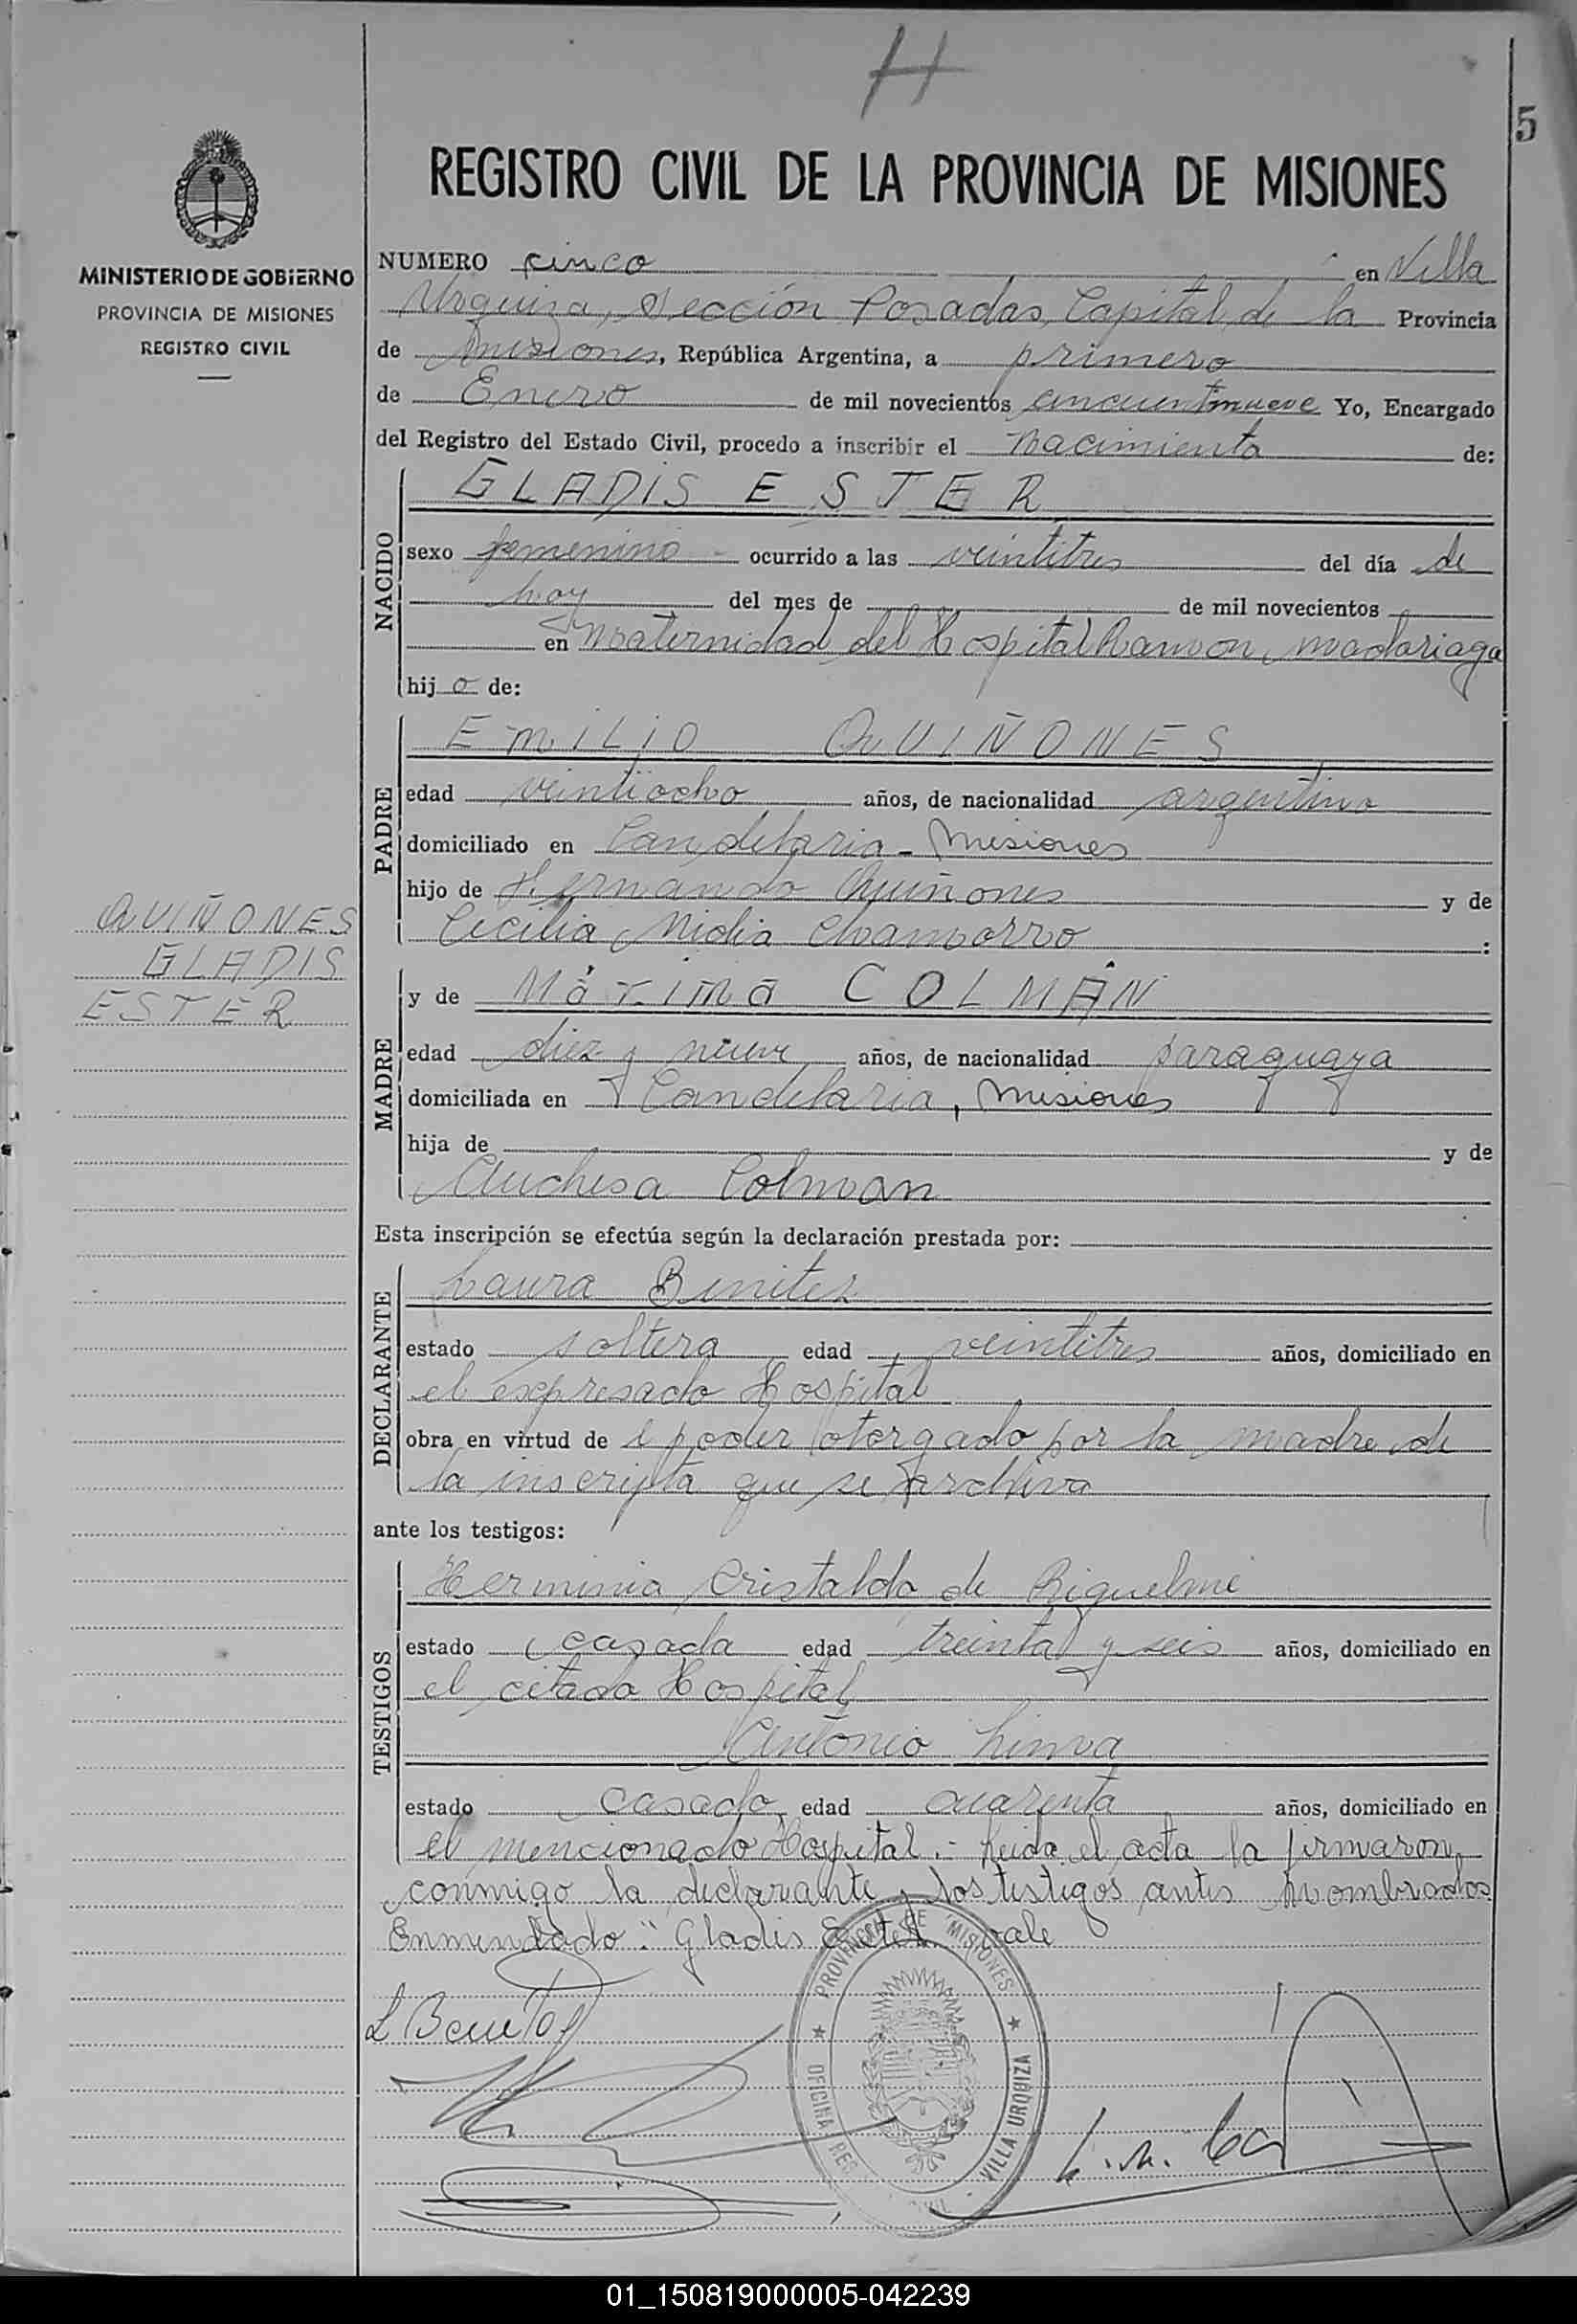 H
5
REGISTRO CIVIL DE LA PROVINCIA DE MISIONES
MINISTERIO DE GOBIERNO
PROVINCIA DE MISIONES
REGISTRO CIVIL
NUMERO cinco en Villa
Urquiza, Sección Posadas, Capital de la Provincia
de Misiones, República Argentina, a primero
de Enero de mil novecientos cincuentinueve Yo, Encargado
del Registro del Estado Civil, procedo a inscribir el Nacimiento de:
NACIDO
GLADIS ESTER
sexo femenino - ocurrido a las veintitres del día de
hoy del mes de de mil novecientos
en Maternidad del Hospital Ramon Madariaga
hij a de:
PADRE
EMILIO QUIÑONES
edad veintiocho años, de nacionalidad argentino
domiciliado en Candelaria - Misiones
hijo de Hernando Quiñones y de
Cecilia Nidia Chamorro :
QUIÑONES
GLADIS
ESTER
MADRE
y de Máxima COLMÁN
edad diez y nueve años, de nacionalidad paraguaya
domiciliada en Candelaria, Misiones
hija de y de
Colman
Esta inscripción se efectúa según la declaración prestada por:
DECLARANTE
Laura Benitez
estado soltera edad veintitres años, domiciliado en
el expresado Hospital
obra en virtud de l poder otorgado por la madre de
la inscripta que se archiva
ante los testigos:
TESTIGOS
Herminia Cristaldo de Riquelme
estado casada edad treinta y seis años, domiciliado en
el citado Hospital
Antonio Lima
estado casado edad cuarenta años, domiciliado en
el mencionado Hospital.- Leida el acta la firmaron
conmigo la declarante y los testigos antes nombrados
Enmendado: "Gladis Ester" vale
L Benitez
PROVINCIA DE MISIONES
OFICINA REG. CIVIL - VILLA URQUIZA
01_150819000005-042239